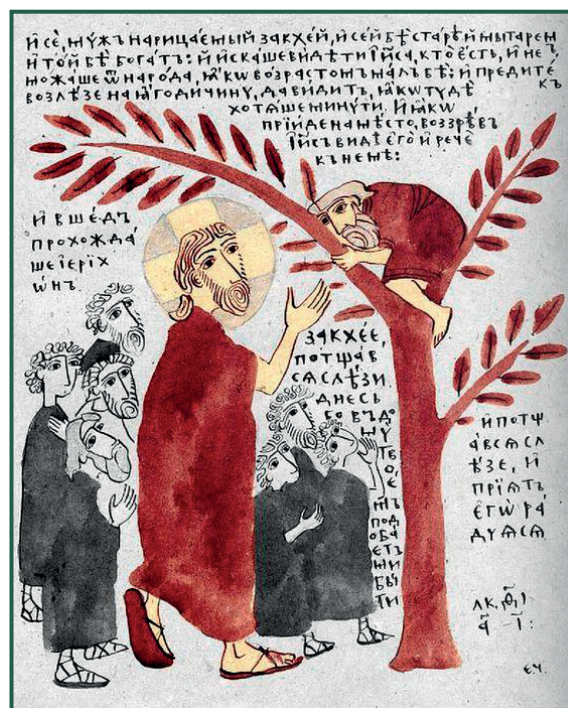 И҆ сѐ, мꙋ́жъ нарица́емый закхе́й, и҆ се́й бѣ̀ старѣ́й мытарем
и҆ то́й бѣ̀ бога́тъ: и҆ искаше видѣ́ти і҆и҃са, кто̀ є҆́сть, и҆ не
можаше ѿ наро́да, ꙗ҆́кѡ возрастомъ ма́лъ бѣ̀: и҆ предите́
къ
возлѣ́зе на ꙗ҆годичину, да видитъ, ꙗ҆́кѡ тудѣ̀
хотѧ́ше минути. И҆ ꙗ҆́кѡ
прїи́де на мѣ́сто, воззрѣ́въ
і҆и҃съ видѣ̀ є҆го̀ и҆ речѐ
къ немꙋ̀:
И҆ вше́дъ
прохожда́
ше і҆ерїх
ѡ́нъ.
закхе́е,
потща́в
сѧ слѣ́зи.
дне́сь
бо въ до
мꙋ̀
тво
е́
мъ
под
оба
етъ
ми
бы́
ти
и҆ потщ
а́всѧ сл
ѣ́зе, и҆
прїѧ́тъ
є҆го̀ ра́
дуѧсѧ
лк. ѳ҃і
а҃ - і҃:
є.ч.